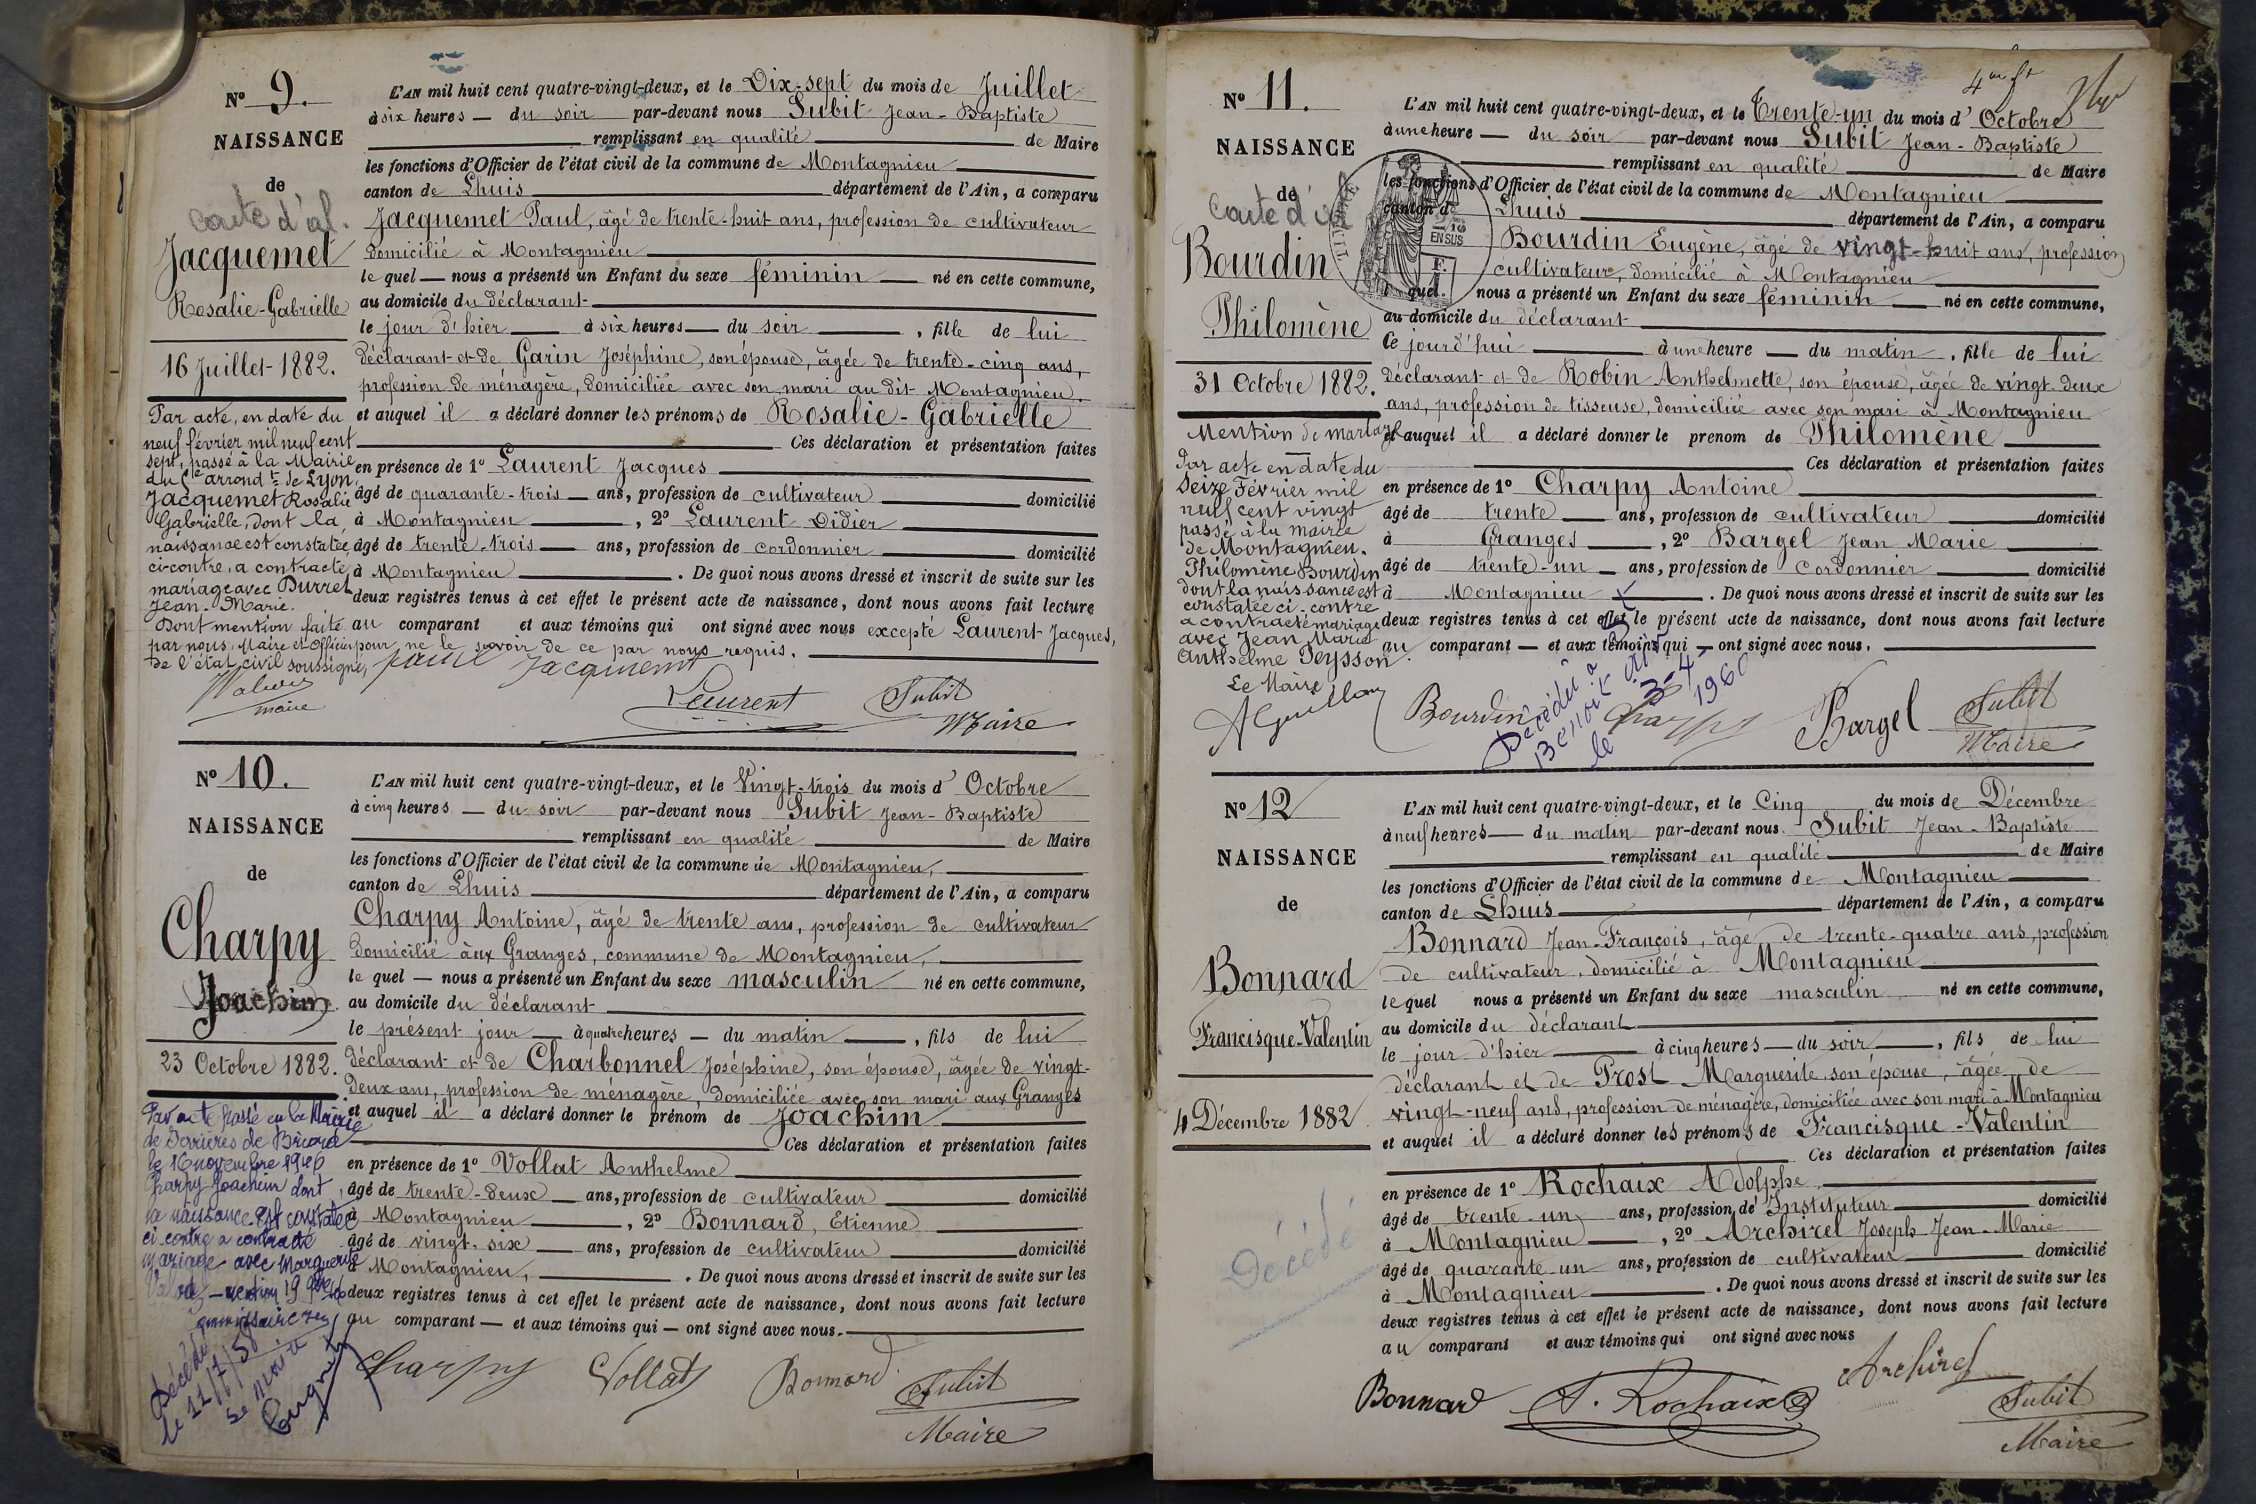 N° 9.
NAISSANCE
de
Carte d'al.
Jacquemet
Rosalie-Gabrielle
16 Juillet 1882.
Par acte, en date du
neuf février mil neuf cent
sept, passé à la Mairie
du arrondt de Lyon,
Jacquemet Rosalie
Gabrielle, dont la
naissance est constatée
ci-contre, a contracté
mariage avec Durret
Jean-Marie.
Dont mention faite
par nous, Maire et Officier
de l'état civil soussigné,
maire
L'AN mil huit cent quatre-vingt-deux, et le Dix-sept du mois de Juillet
à six heures — du soir par-devant nous Subit Jean-Baptiste
remplissant en qualité de Maire
les fonctions d'Officier de l'état civil de la commune de Montagnieu
canton de Lhuis département de l'Ain, a comparu
Jacquemet Paul, âgé de trente-huit ans, profession de cultivateur
domicilié à Montagnieu
le quel — nous a présenté un Enfant du sexe féminin — né en cette commune,
au domicile du déclarant
le jour d'hier à six heures — du soir, fille de lui
déclarant et de Garin Joséphine, son épouse, âgée de trente-cinq ans,
profession de ménagère, domiciliée avec son mari au dit Montagnieu.
et auquel il a déclaré donner les prénoms de Rosalie-Gabrielle
Ces déclaration et présentation faites
en présence de 1° Laurent Jacques
âgé de quarante-trois — ans, profession de cultivateur domicilié
à Montagnieu, 2° Laurent Didier
âgé de trente-trois — ans, profession de cordonnier domicilié
à Montagnieu. De quoi nous avons dressé et inscrit de suite sur les
deux registres tenus à cet effet le présent acte de naissance, dont nous avons fait lecture
au comparant et aux témoins qui ont signé avec nous excepté Laurent Jacques,
pour ne le savoir de ce par nous requis.
Jacquemet
Laurent Subit
Maire
N° 10.
NAISSANCE
de
Charpy
Joachim
23 Octobre 1882.
Par acte passé en la Mairie
de Serrières de Briord
le 16 novembre
Charpy Joachim dont
la naissance est constatée
ci contre a contracté
mariage avec Marguerite
Décédé
le 11/7/58
L'AN mil huit cent quatre-vingt-deux, et le Vingt-trois du mois d'Octobre
à cinq heures — du soir par-devant nous Subit Jean-Baptiste
remplissant en qualité de Maire
les fonctions d'Officier de l'état civil de la commune de Montagnieu,
canton de Lhuis département de l'Ain, a comparu
Charpy Antoine, âgé de trente ans, profession de cultivateur
domicilié aux Granges, commune de Montagnieu,
le quel — nous a présenté un Enfant du sexe masculin né en cette commune,
au domicile du déclarant
le présent jour — à quatre heures — du matin —, fils de lui
déclarant et de Charbonnel Joséphine, son épouse, âgée de vingt-
deux ans, profession de ménagère, domiciliée avec son mari aux Granges
et auquel il a déclaré donner le prénom de Joachim
Ces déclaration et présentation faites
en présence de 1° Vollat Anthelme
âgé de trente-deux — ans, profession de cultivateur domicilié
à Montagnieu, 2° Bonnard, Etienne
âgé de vingt-six — ans, profession de cultivateur domicilié
à Montagnieu,. De quoi nous avons dressé et inscrit de suite sur les
deux registres tenus à cet effet le présent acte de naissance, dont nous avons fait lecture
au comparant — et aux témoins qui — ont signé avec nous.
Charpy Vollat Bonnard Subit
Maire
N° 11.
NAISSANCE
de
Carte d'al
Bourdin
Philomène
31 Octobre 1882.
Mention de mariage
Par acte en date du
Seize Février mil
neuf cent vingt
passé à la Mairie
de Montagnieu.
Philomène Bourdin
dont la naissance est
constatée ci-contre
a contracté mariage
avec Jean Marie
Anthelme Peysson.
Le Maire
L'AN mil huit cent quatre-vingt-deux, et le Trente-un du mois d'Octobre
à une heure — du soir par-devant nous Subit Jean-Baptiste
remplissant en qualité de Maire
les fonctions d'Officier de l'état civil de la commune de Montagnieu
canton de Lhuis département de l'Ain, a comparu
Bourdin Eugène, âgé de vingt-huit ans, profession
cultivateur, domicilié à Montagnieu
quel nous a présenté un Enfant du sexe féminin — né en cette commune,
au domicile du déclarant
Ce jourd'hui à une heure — du matin, fille de lui
déclarant et de Robin Anthelmette, son épouse, âgée de vingt-deux
ans, profession de tisseuse, domiciliée avec son mari à Montagnieu
et auquel il a déclaré donner le prenom de Philomène
Ces déclaration et présentation faites
en présence de 1° Charpy Antoine
âgé de trente ans, profession de cultivateur domicilié
à Granges, 2° Bargel Jean Marie
âgé de trente-un — ans, profession de cordonnier domicilié
à Montagnieu. De quoi nous avons dressé et inscrit de suite sur les
deux registres tenus à cet effet le présent acte de naissance, dont nous avons fait lecture
au comparant — et aux témoins qui — ont signé avec nous.
Décédée à
le 3-4-1960
Bourdin Charpy Bargel Subit
Maire
EN SUS
N° 12
NAISSANCE
de
Bonnard
Francisque-Valentin
4 Décembre 1882
Décédé
L'AN mil huit cent quatre-vingt-deux, et le Cinq du mois de Décembre
à neuf heures — du matin par-devant nous Subit Jean-Baptiste
remplissant en qualité de Maire
les fonctions d'Officier de l'état civil de la commune de Montagnieu
canton de Lhuis département de l'Ain, a comparu
Bonnard Jean-François, âgé de trente-quatre ans, profession
de cultivateur, domicilié à Montagnieu
le quel nous a présenté un Enfant du sexe masculin né en cette commune,
au domicile du déclarant
le jour d'hier à cinq heures — du soir —, fils de lui
déclarant et de Prost Marguerite son épouse, âgée de
vingt-neuf ans, profession de ménagère, domiciliée avec son mari à Montagnieu
et auquel il a déclaré donner les prénoms de Francisque-Valentin
Ces déclaration et présentation faites
en présence de 1° Rochaix Adolphe
âgé de trente-un ans, profession d'Instituteur domicilié
à Montagnieu, 2° Archirel Joseph Jean-Marie
âgé de quarante-un ans, profession de cultivateur domicilié
à Montagnieu. De quoi nous avons dressé et inscrit de suite sur les
deux registres tenus à cet effet le présent acte de naissance, dont nous avons fait lecture
au comparant et aux témoins qui ont signé avec nous
Archirel
Bonnard A. Rochaix Subit
Maire